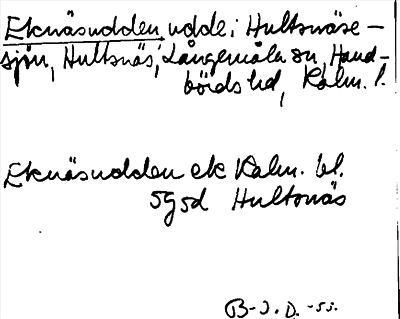 Eknäsudden, udde i Hultsnäse-
sjön, Hultsnäs, Långemåla sn, Hand-
börds hd, Kalm. l.
Eknäsudden ek Kalm. bl.
5g5d Hultsnäs
B-J. D. -53.